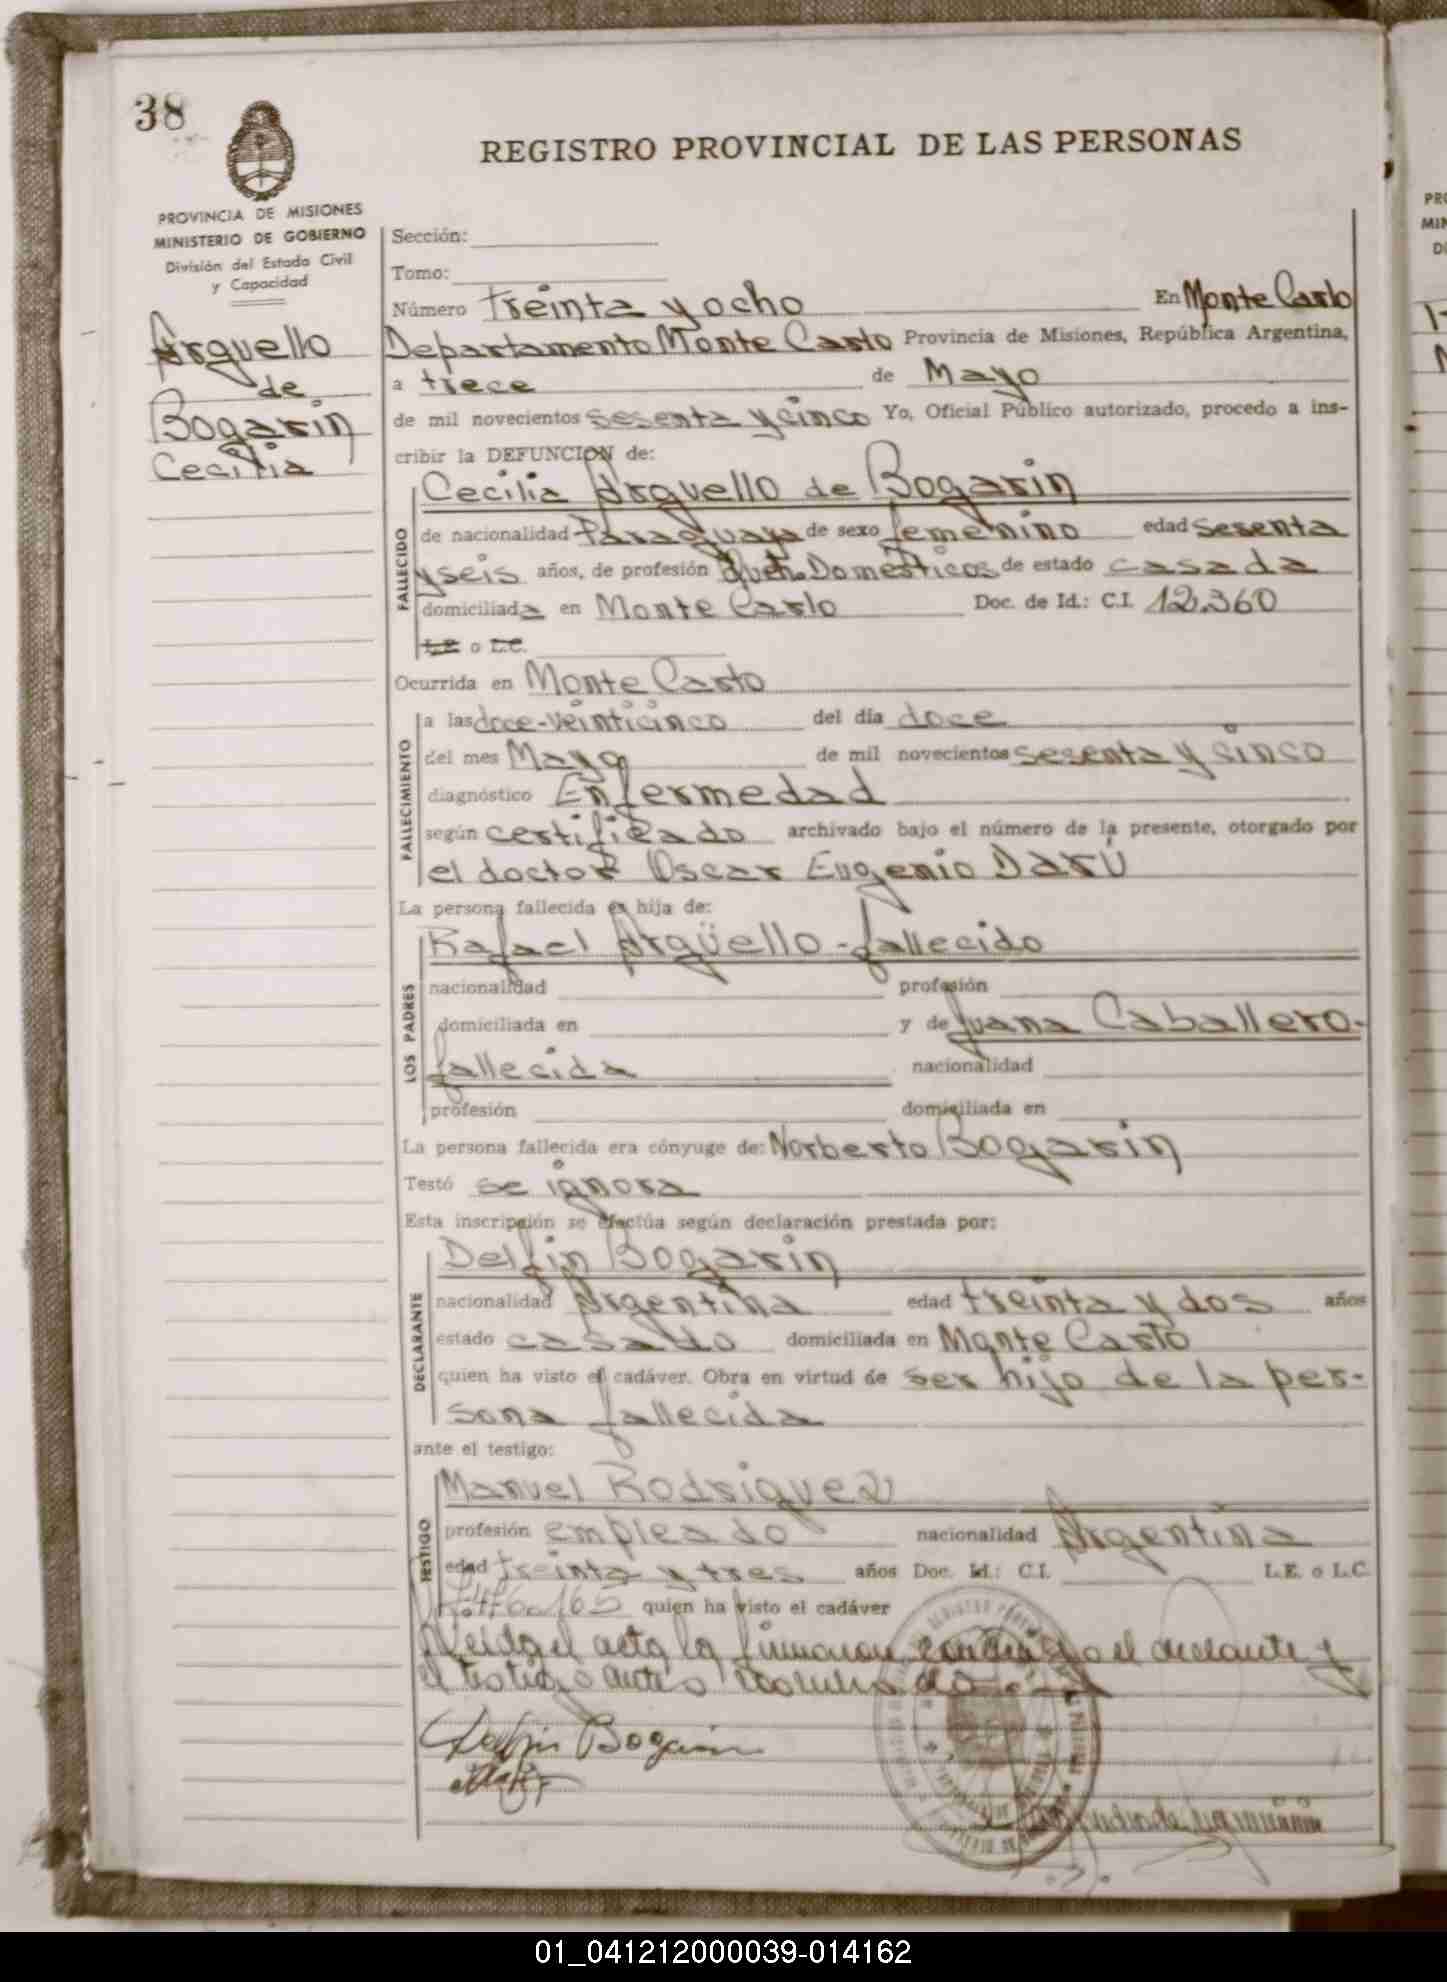 38
REGISTRO PROVINCIAL DE LAS PERSONAS
PROVINCIA DE MISIONES
MINISTERIO DE GOBIERNO
División del Estado Civil
y Capacidad
Arguello
de
Bogarin
Cecilia
Sección:
Tomo:
Número treinta y ocho En Monte Carlo
Departamento Monte Carlo Provincia de Misiones, República Argentina,
a trece de Mayo
de mil novecientos sesenta y cinco Yo, Oficial Público autorizado, procedo a ins-
cribir la DEFUNCION de:
FALLECIDO
Cecilia Arguello de Bogarin
de nacionalidad Paraguaya de sexo femenino edad sesenta
y seis años, de profesión Queh. Domésticos de estado casada
domiciliada en Monte Carlo Doc. de Id.: C.I. 12.360
L.E. o L.C.
Ocurrida en Monte Carlo
FALLECIMIENTO
a las doce-veinticinco del día doce
del mes Mayo de mil novecientos sesenta y cinco
diagnóstico Enfermedad
según certificado archivado bajo el número de la presente, otorgado por
el doctor Oscar Eugenio Darú
La persona fallecida es hija de:
LOS PADRES
Rafael Argüello - fallecido
nacionalidad profesión
domiciliada en y de Juana Caballero-
fallecida nacionalidad
profesión domiciliada en
La persona fallecida era cónyuge de: Norberto Bogarin
Testó se ignora
Esta inscripción se efectúa según declaración prestada por:
DECLARANTE
Delfin Bogarin
nacionalidad Argentina edad treinta y dos años
estado casado domiciliada en Monte Carlo
quien ha visto el cadáver. Obra en virtud de ser hijo de la per-
sona fallecida
ante el testigo:
TESTIGO
Manuel Rodriguez
profesión empleado nacionalidad Argentina
edad treinta y tres años Doc. Id.: C.I. L.E. o L.C.
quien ha visto el cadáver
Leida el acta la firmaron conmigo el declarante y
el testigo antes nombrado
Delfin Bogarin
01_041212000039-014162